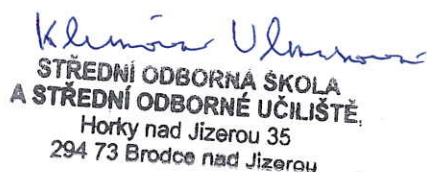 STŘEDNÍ ODBORNÁ ŠKOLA
A STŘEDNÍ ODBORNÉ UČILIŠTĚ,
Horky nad Jizerou 35
294 73 Brodce nad Jizerou